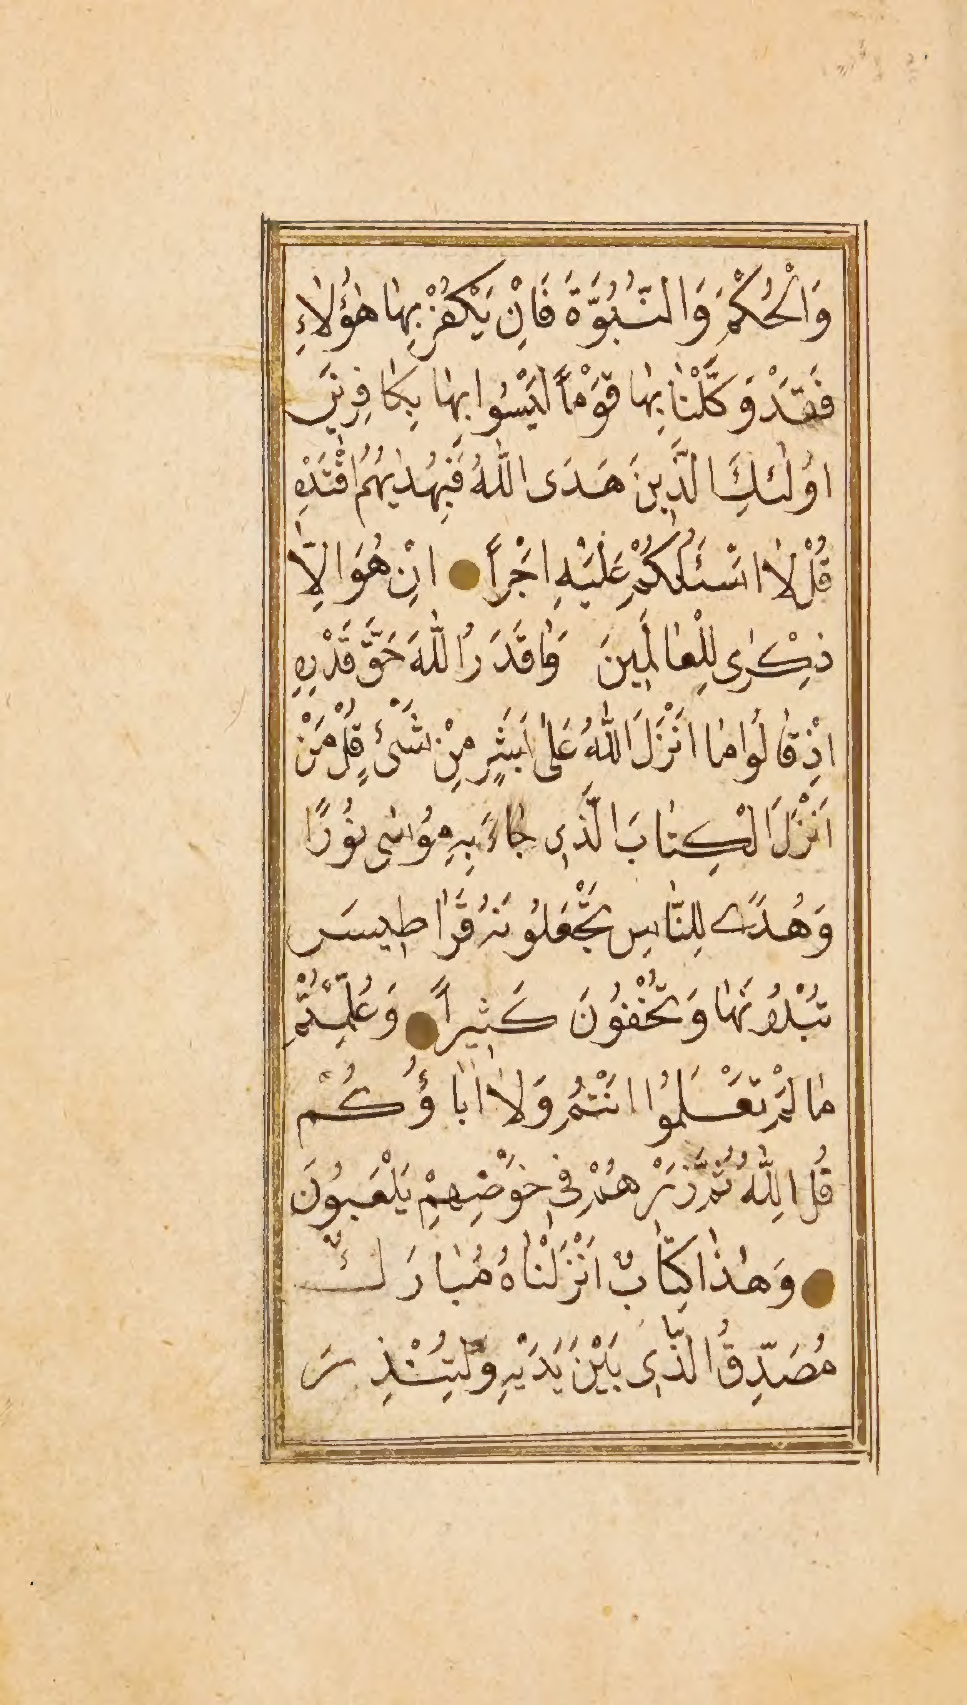 وَالْحُكْمَ وَالنُّبُوَّةَ فَاِنْ يَكْفُرْ بِهٰا هٰؤُلٰاءِ
فَقَدْ وَكَّلْنٰا بِهٰا قَوْماً لَيْسُوا بِهٰا بِكٰافِرِينَ
اُولٰئِكَ الَّذِينَ هَدَى اللّٰهُ فَبِهُدٰيهُمُ اقْتَدِهْ
قُلْ لٰا اَسْئَلُكُمْ عَلَيْهِ اَجْراً اِنْ هُوَ اِلّٰا
ذِكْرٰى لِلْعٰالَمِينَ وَمٰا قَدَرُوا اللّٰهَ حَقَّ قَدْرِهِ
اِذْ قٰالُوا مٰا اَنْزَلَ اللّٰهُ عَلٰى بَشَرٍ مِنْ شَيْءٍ قُلْ مَنْ
اَنْزَلَ الْكِتٰابَ الَّذِي جٰاءَ بِهِ مُوسٰى نُورًا
وَهُدًى لِلنّٰاسِ تَجْعَلُونَهُ قَرٰاطِيسَ
تُبْدُونَهٰا وَتُخْفُونَ كَثِيراً وَعُلِّمْتُمْ
مٰا لَمْ تَعْلَمُوا اَنْتُمْ وَلٰا اٰبٰاؤُكُمْ
قُلِ اللّٰهُ ثُمَّ ذَرْهُمْ فِي خَوْضِهِمْ يَلْعَبُونَ
وَهٰذٰا كِتٰابٌ اَنْزَلْنٰاهُ مُبٰارَكٌ
مُصَدِّقُ الَّذِي بَيْنَ يَدَيْهِ وَلِتُنْذِرَ